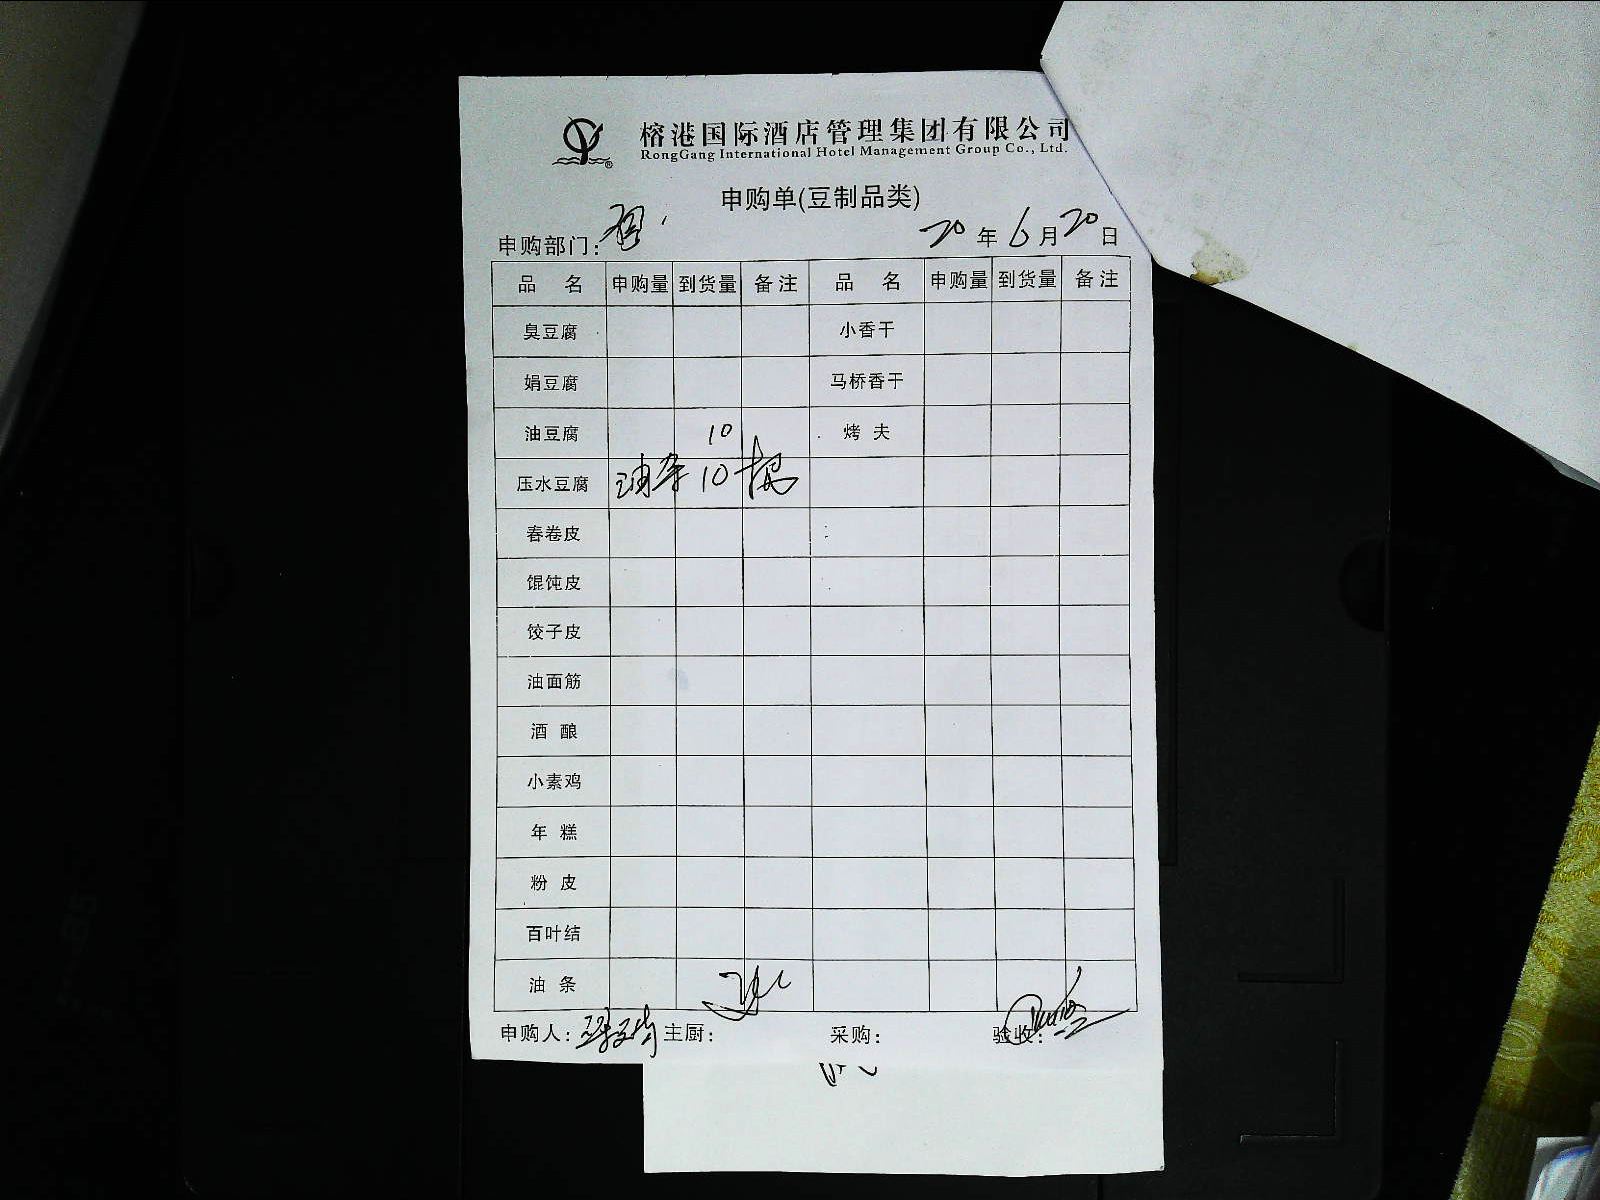 榕港国际酒店管理集团有限公司
RongGang International Hotel Management Group Co., Ltd.
申购单(豆制品类)
申购部门: 20 年 6 月 20 日
品 名 申购量 到货量 备注 品 名 申购量 到货量 备注
臭豆腐 小香干
娟豆腐 马桥香干
油豆腐 10 烤 夫
压水豆腐 油条 10 根
春卷皮
馄饨皮
饺子皮
油面筋
酒 酿
小素鸡
年 糕
粉 皮
百叶结
油 条
申购人: 主厨: 采购: 验收: